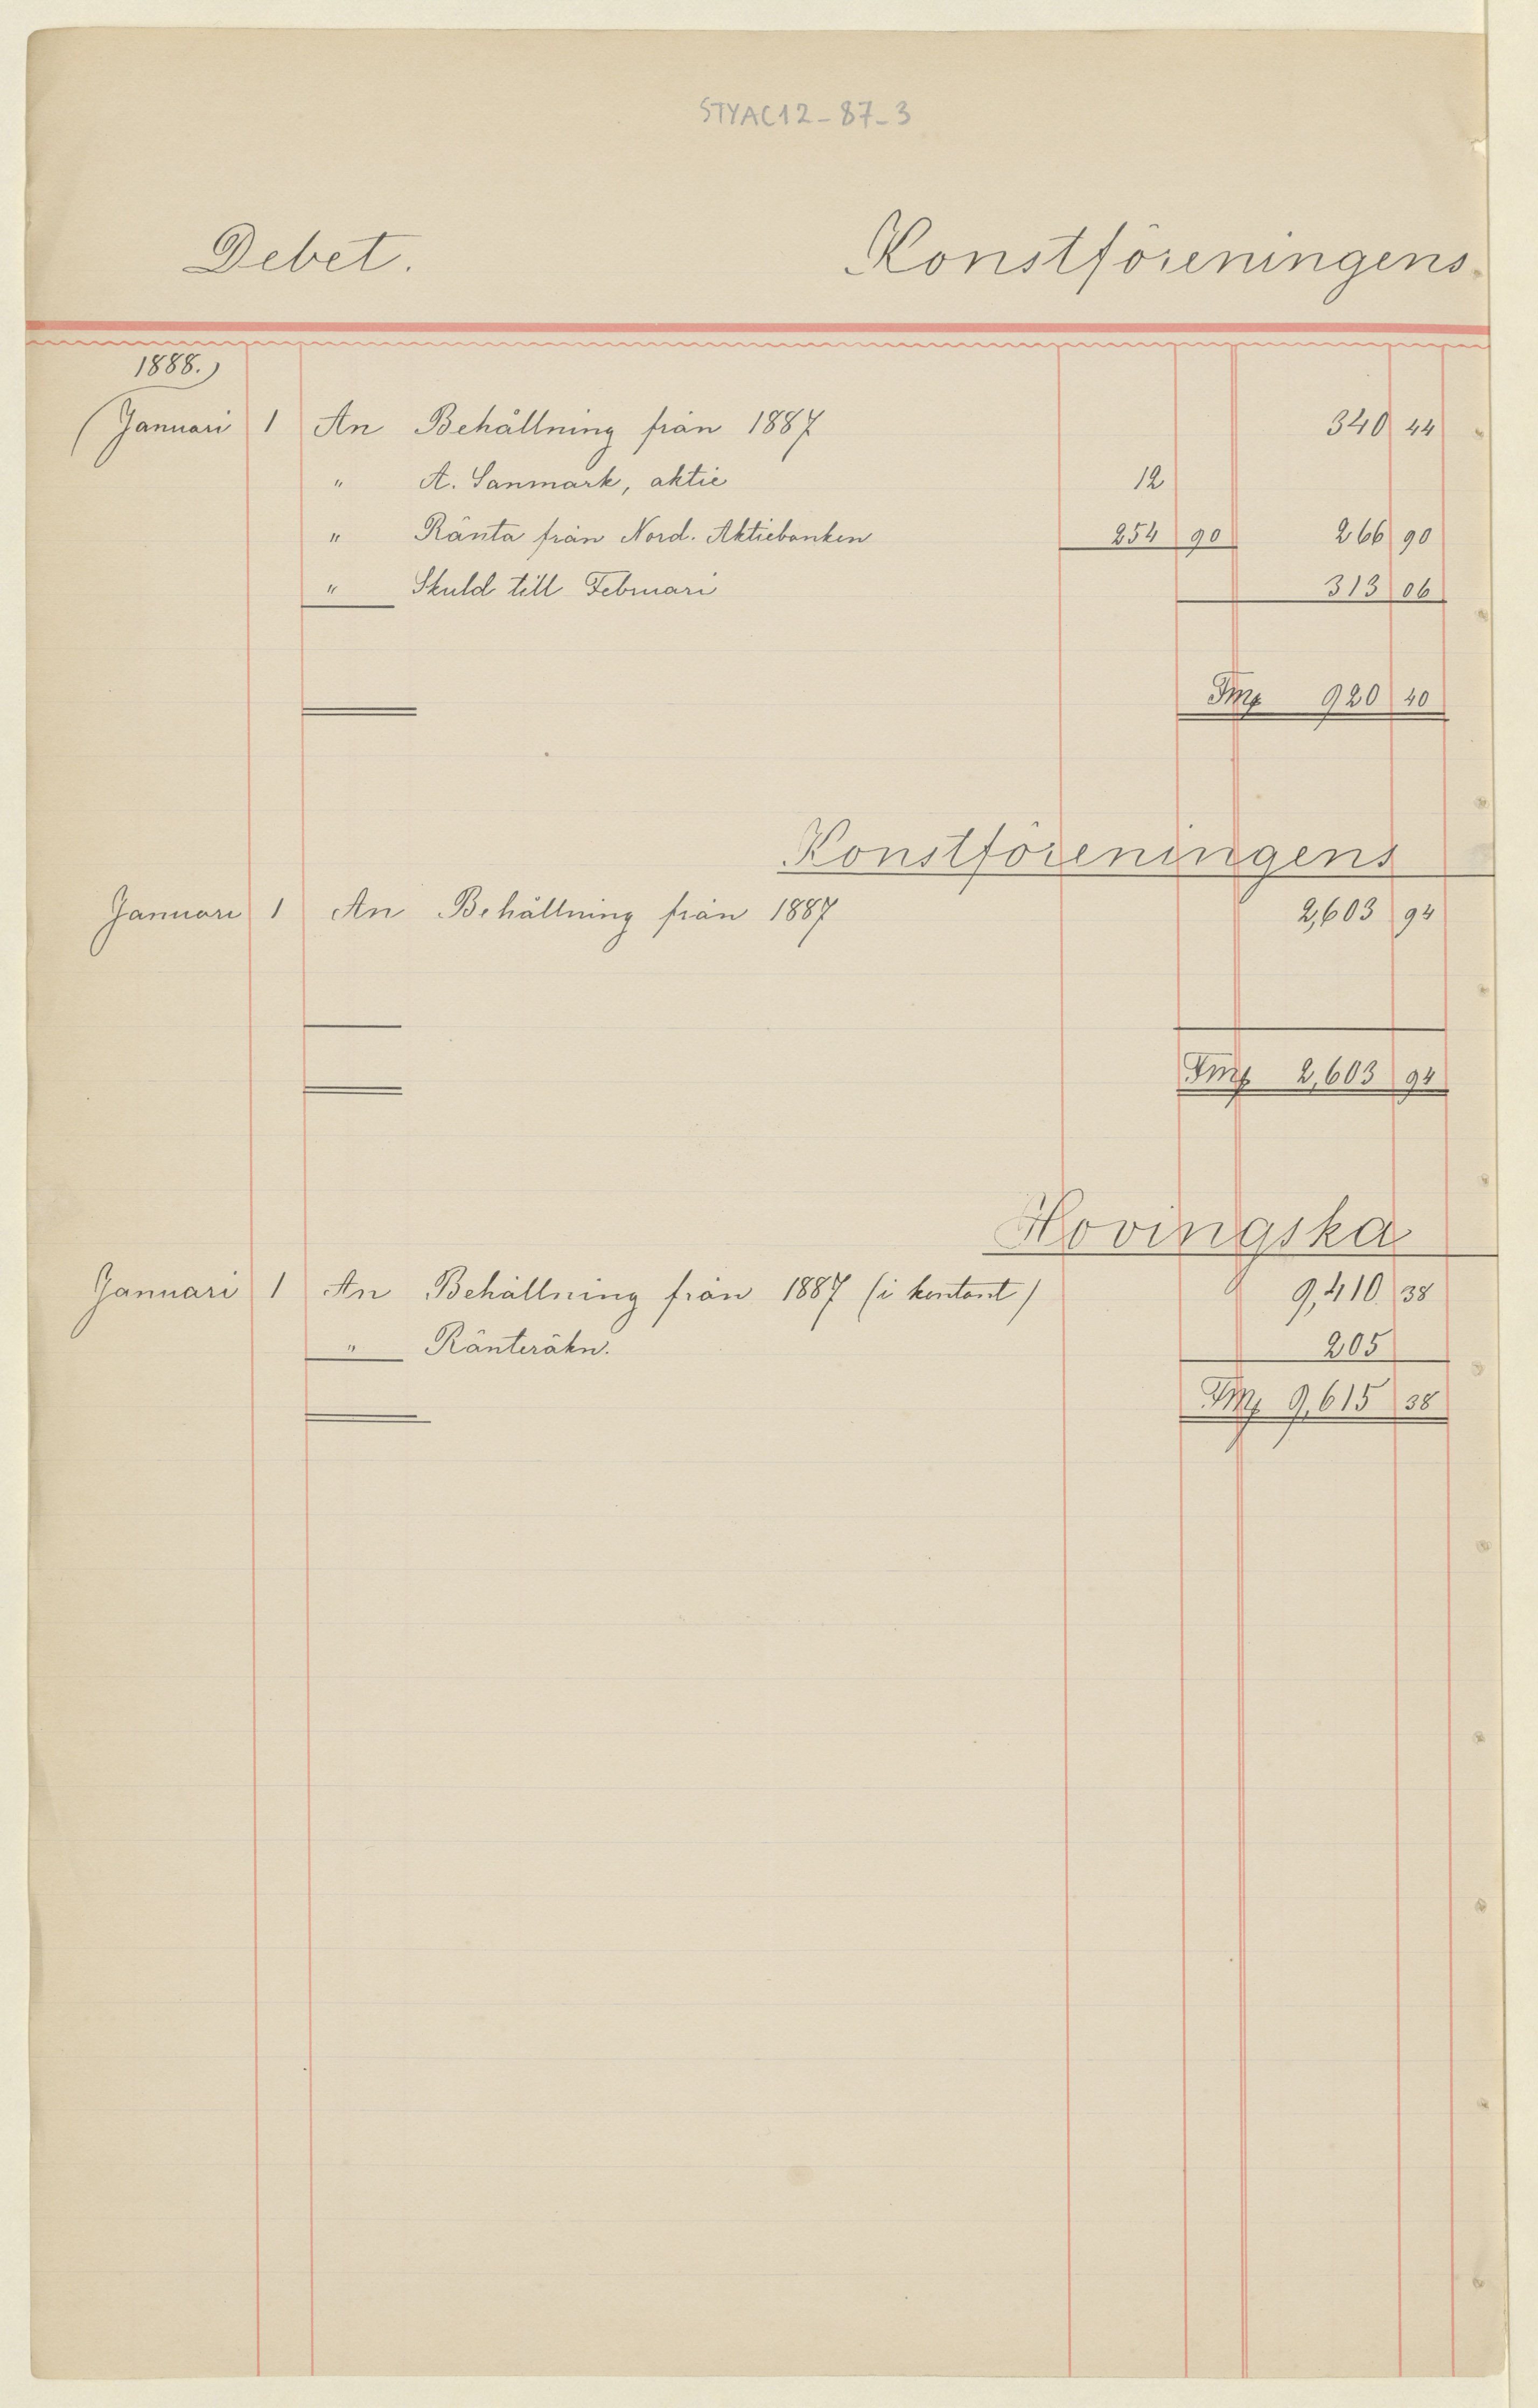 STYAC12-87-3
Debet. Konstföreningens
1888.
Januari 1 An Behållning från 1887 340 44
" A. Sanmark, aktie 12
" Ränta från Nord. Aktiebanken 254 90 266 90
" Skuld till Februari 313 06
Fmk 920 40
Konstföreningens
Januari 1 An Behållning från 1887 2,603 94
Fmk 2,603 94
Hovingska
Januari 1 An Behållning från 1887 (i kontant) 9,410 38
" Ränteräkn. 205
Fmk 9,615 38